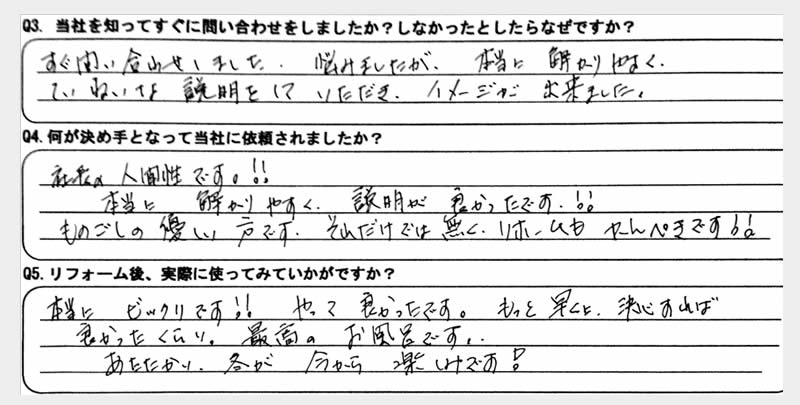 Q3. 当社を知ってすぐに問い合わせをしましたか?しなかったとしたらなぜですか?
すぐ問い合わせしました. 悩みましたが、本当に 解かりやすく.
ていねいな 説明をして いただき. イメージが 出来ました.
Q4. 何が決め手となって当社に依頼されましたか?
社長の 人間性です。!!
本当に 解かりやすく. 説明が 良かったです.!!
ものごしの 優しい 方です. それだけでは 無く. リホームも かんぺきです!!
Q5. リフォーム後、実際に使ってみていかがですか?
本当に ビックリです!! やって 良かったです。 もっと 早くに 決心すれば
良かったくらい。 最高の お風呂です..
あたたかい. 冬が 今から 楽しみです!